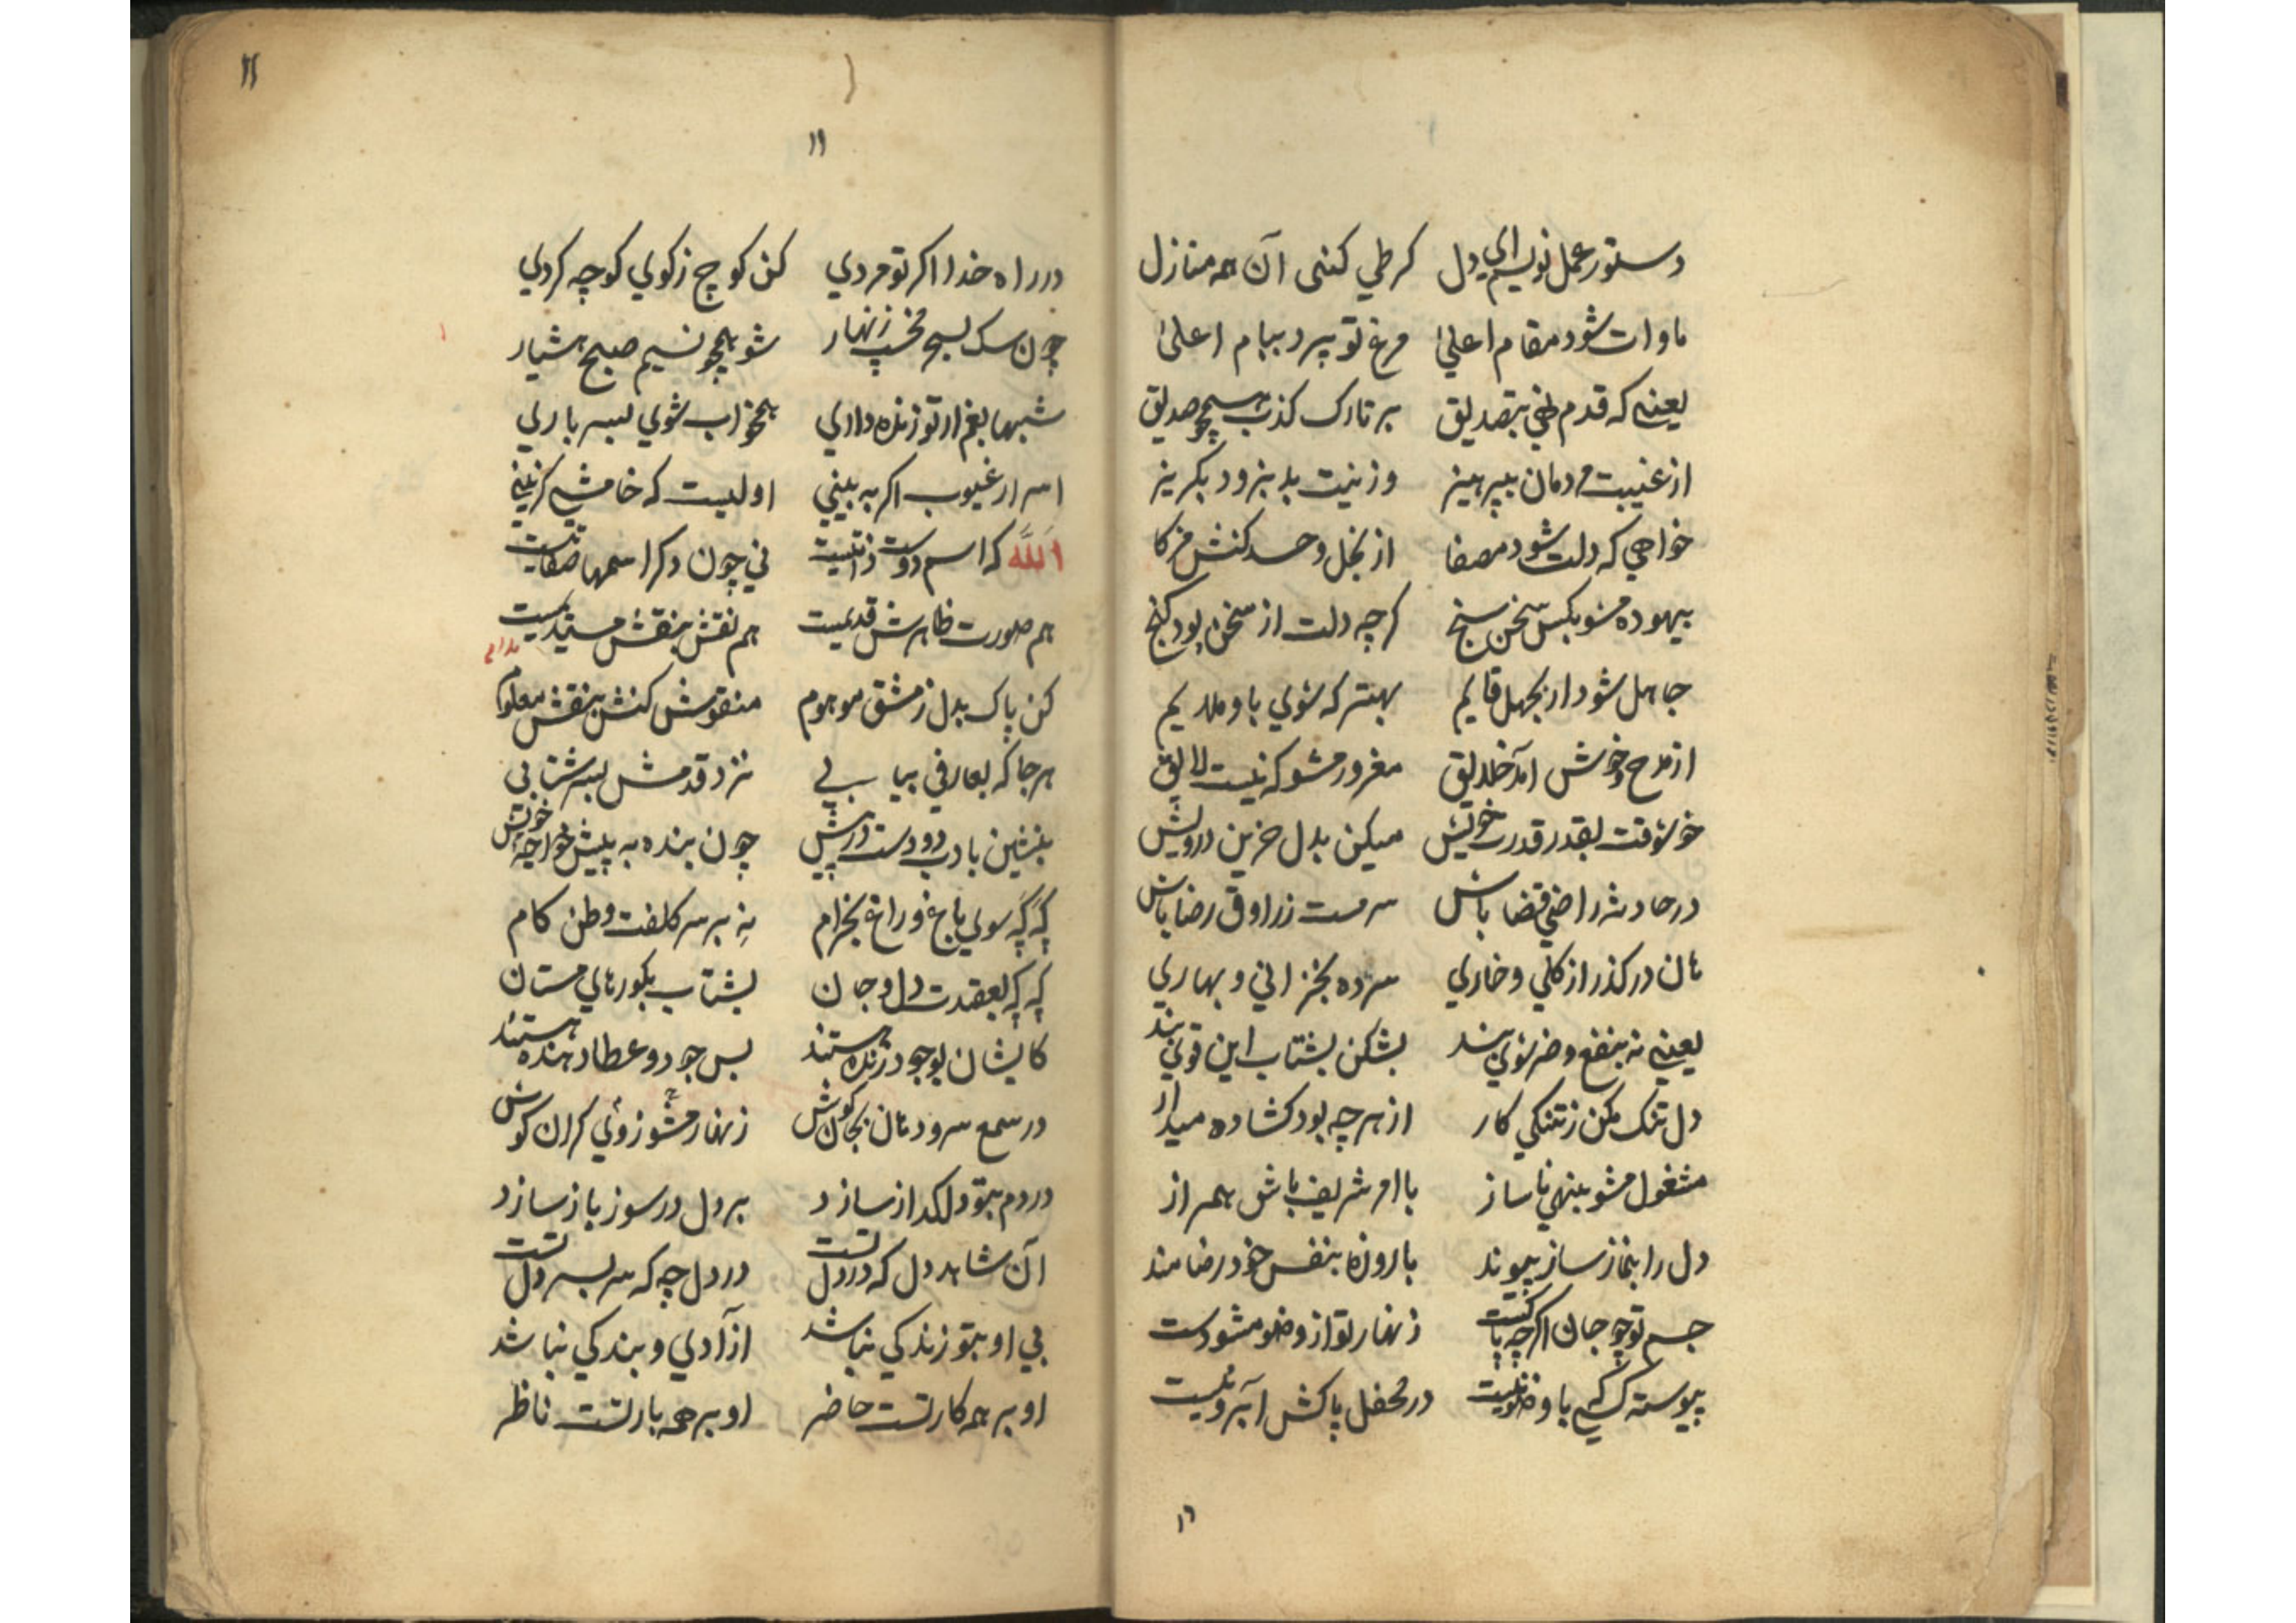 دستور عمل نویسم ای دل کر طی کنی آن همه منازل
ماوات شود مقام اعلی مرغ تو پرد ببام اعلی
یعنی که قدم نهی بتصدیق بر تارک کذب همچو صدیق
از غیبت مردمان بپرهیز وز نیت بد بزود بگریز
خواهی که دلت شود مصفا از بخل و حسد کنش مزکا
بیهوده مشو بکس سخن سنج کرچه دلت از سخن بود کنج
جاهل شود ار بجهل قایم بهتر که شوی باو ملایم
از مدح و خوش آمد خلایق مغرور مشو که نیست لایق
خوشوقت بقدر قدرت خویش میکن بدل حزین درویش
در حادثه راضی قضا باش سرمست ز راوق رضا باش
هان در کذر از کلی و خاری سر ده بخزانی و بهاری
یعنی نه بنفع و ضر شوی بند بشکن بشتاب این قوی بند
دل تنک مکن ز تنکی کار از هر چه بود کشاده میدار
مشغول مشو بنهی ناساز با امر شریف باش همراز
دل را بنماز ساز پیوند با روزه بنفس خود رضامند
جسم تو چو جان اکرچه پاکست زنهار تو از وضو مشو دست
پیوسته کسی با وضو نیست در محفل پاکش آبرو نیست
۱۲
۱۱
۱۱
در راه خدا اکر تو مردی کن کوچ ز کوی کوچه کردی
چون سک بسیج مخسپ زنهار شو همچو نسیم صبح هشیار
شبها بغم ار تو زنده داری همخواب شوی بسر باری
اسرار غیوب اکر به بینی اولیست که خامشی کزینی
الله که اسم دوست ذاتیست نی چون دکر اسمها صفاتیست
هم صورت ظاهرش قدیمیست هم نقش بنقش مستدیمیست
کن پاک بدل ز مشق موهوم منقوش کنش بنقش معلوم
هر جا که بعارفی بیابی نزد قدمش بسر شتابی
بنشین بادب دو دست در پیش چون بنده به پیش خواجه خویش
که که سوی باغ و راغ بخرام نه بر سر کلفت وطن کام
که که بعقیدت دل و جان بشتاب بکورهای مستان
کایشان بوجود زنده هستند بس جود و عطا دهنده هستند
در سمع سرود هان بجان کوش زنهار مشو ز وی کران کوش
در دم بتو دلکداز سازد بر دل در سوز باز سازد
آن شاهد دل که در دل تست در دل چه که سر بسر دل تست
بی او بتو زندکی نباشد آزادی و بندکی نباشد
او بر همه کار تست حاضر او بر همه بار تست ناظر